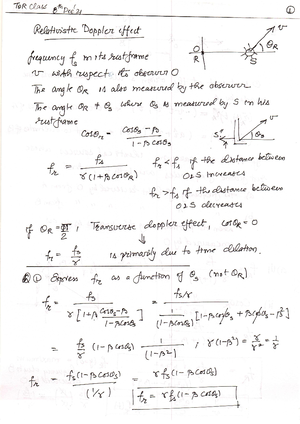 TOR Class 8th Dec'21
①
Relativistic Doppler effect
frequency fs in its rest frame
v with respect to observer O
The angle θR is also measured by the observer.
The angle θR ≠ θs where θs is measured by S in his
rest frame
O
R
S
v
θR
v
θs
cosθR = (cosθs - β) / (1 - β cosθs)
fr = fs / (γ(1+β cosθR))
fr < fs if the distance between
O & S increases
fr > fs if the distance between
O & S decreases
if θR = π/2, Transverse doppler effect, cosθR = 0
fr = fs / γ is primarily due to time dilation.
① Express fr as a function of θs (not θR)
fr = fs / (γ [1 + β (cosθs - β)/(1 - β cosθs)]) = (fs/γ) / ((1/(1 - β cosθs)) [1 - β cosθs + β cosθs - β²])
= (fs/γ) (1 - β cosθs) · 1/(1 - β²) ; γ(1 - β²) = γ/γ² = 1/γ
fr = fs (1 - β cosθs) / (1/γ) = γ fs (1 - β cosθs)
fr = γ fs (1 - β cosθs)